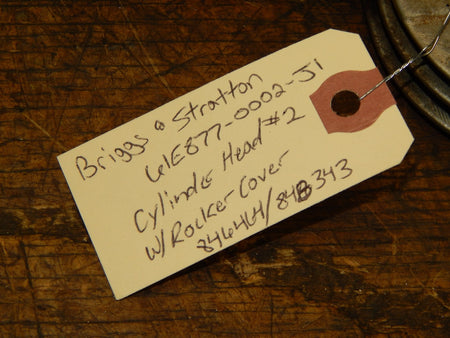 Briggs & Stratton
61E877-0002-J1
Cylinder Head #2
W/Rocker Cover
846464/848343